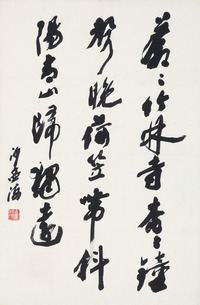 蒼〻竹林寺杳〻鐘
聲晚荷笠帶斜
陽青山歸獨遠
沙孟海